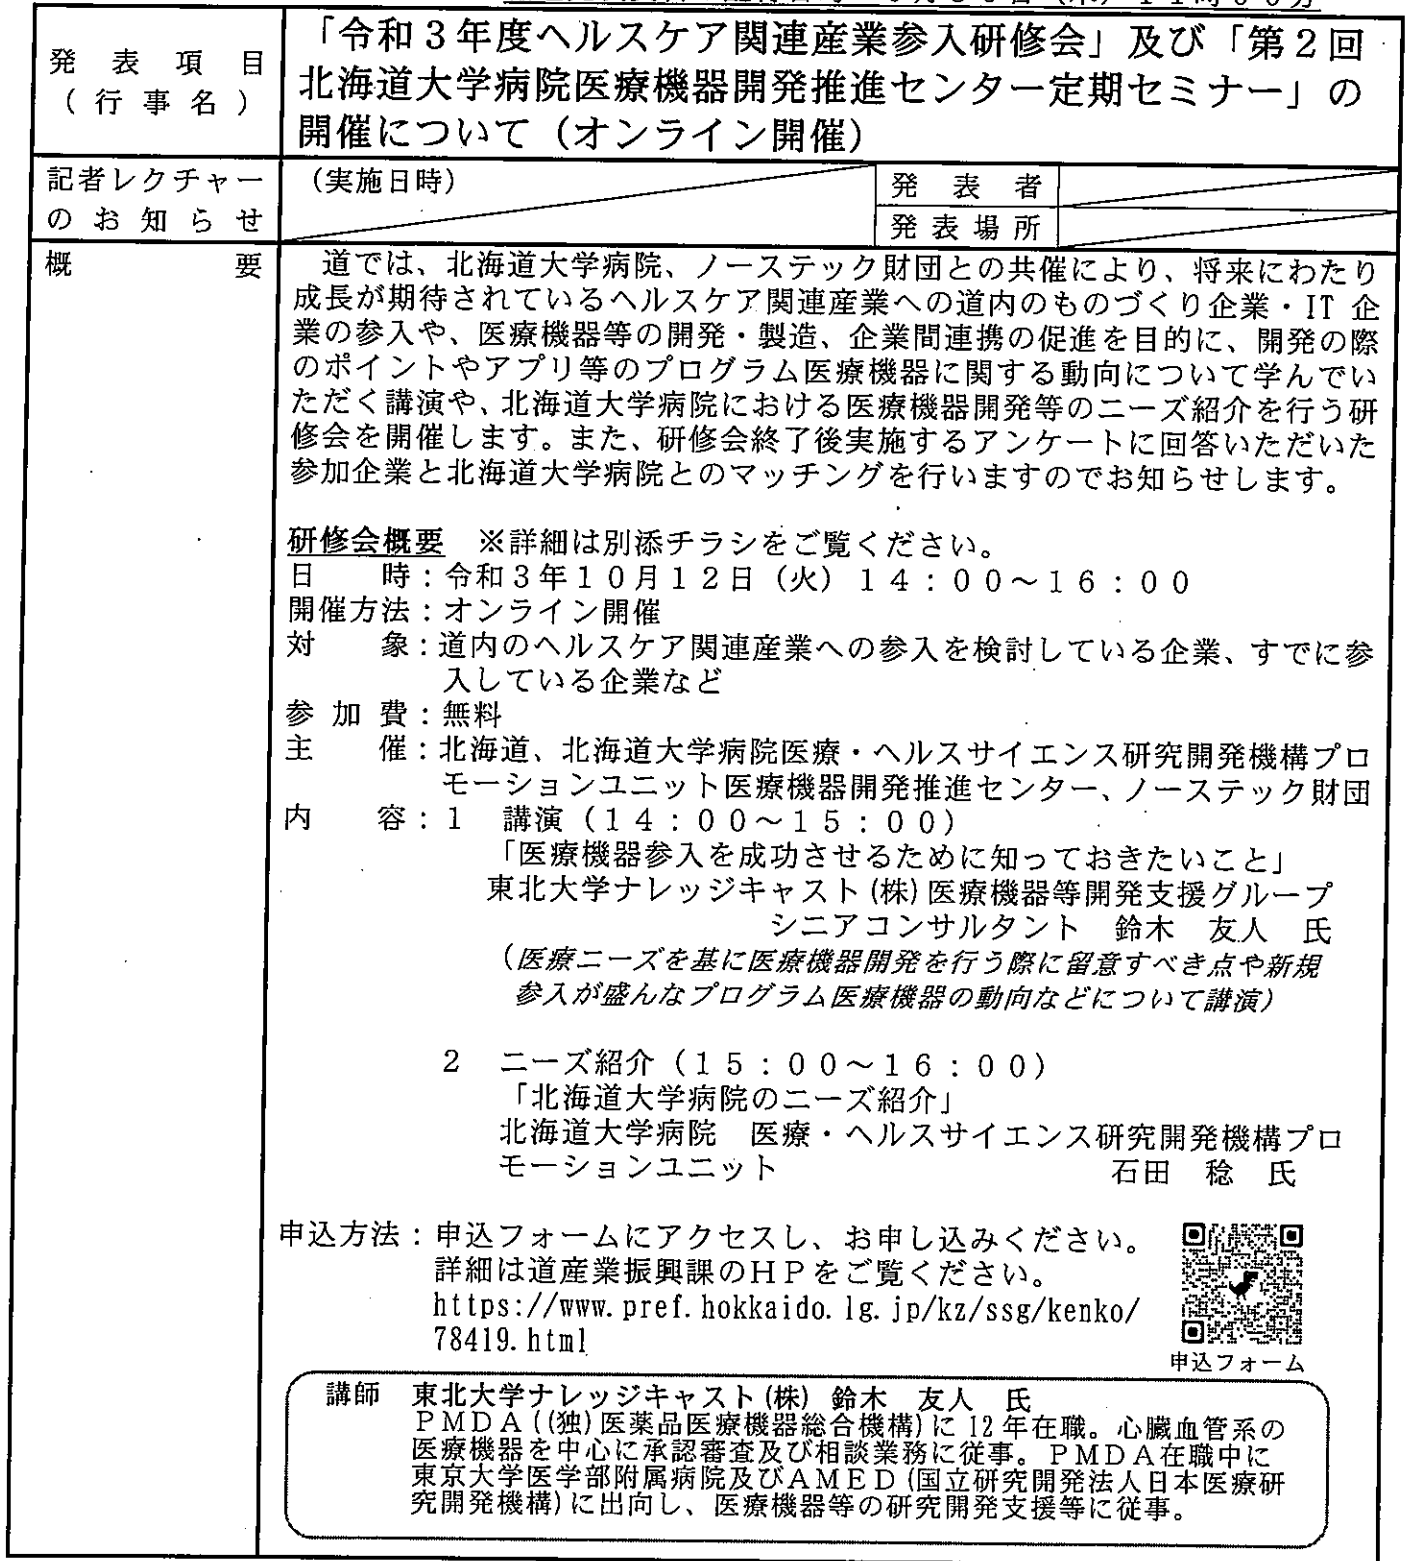 「令和３年度ヘルスケア関連産業参入研修会」及び「第２回
発表項目
（行事名）
北海道大学病院医療機器開発推進センター定期セミナー」の
開催について（オンライン開催）
記者レクチャー
のお知らせ
（実施日時）
発表者
発表場所
概要
道では、北海道大学病院、ノーステック財団との共催により、将来にわたり
成長が期待されているヘルスケア関連産業への道内のものづくり企業・IT 企
業の参入や、医療機器等の開発・製造、企業間連携の促進を目的に、開発の際
のポイントやアプリ等のプログラム医療機器に関する動向について学んでい
ただく講演や、北海道大学病院における医療機器開発等のニーズ紹介を行う研
修会を開催します。また、研修会終了後実施するアンケートに回答いただいた
参加企業と北海道大学病院とのマッチングを行いますのでお知らせします。
研修会概要　※詳細は別添チラシをご覧ください。
日　　時：令和３年１０月１２日（火）１４：００～１６：００
開催方法：オンライン開催
対　　象：道内のヘルスケア関連産業への参入を検討している企業、すでに参
入している企業など
参 加 費：無料
主　　催：北海道、北海道大学病院医療・ヘルスサイエンス研究開発機構プロ
モーションユニット医療機器開発推進センター、ノーステック財団
内　　容：１　講演（１４：００～１５：００）
「医療機器参入を成功させるために知っておきたいこと」
東北大学ナレッジキャスト(株)医療機器等開発支援グループ
シニアコンサルタント　鈴木　友人　氏
（医療ニーズを基に医療機器開発を行う際に留意すべき点や新規
参入が盛んなプログラム医療機器の動向などについて講演）
２　ニーズ紹介（１５：００～１６：００）
「北海道大学病院のニーズ紹介」
北海道大学病院　医療・ヘルスサイエンス研究開発機構プロ
モーションユニット　石田　稔　氏
申込方法：申込フォームにアクセスし、お申し込みください。
詳細は道産業振興課のＨＰをご覧ください。
https://www.pref.hokkaido.lg.jp/kz/ssg/kenko/
78419.html
申込フォーム
講師　東北大学ナレッジキャスト(株) 鈴木　友人　氏
ＰＭＤＡ((独)医薬品医療機器総合機構)に 12 年在職。心臓血管系の
医療機器を中心に承認審査及び相談業務に従事。ＰＭＤＡ在職中に
東京大学医学部附属病院及びＡＭＥＤ(国立研究開発法人日本医療研
究開発機構)に出向し、医療機器等の研究開発支援等に従事。